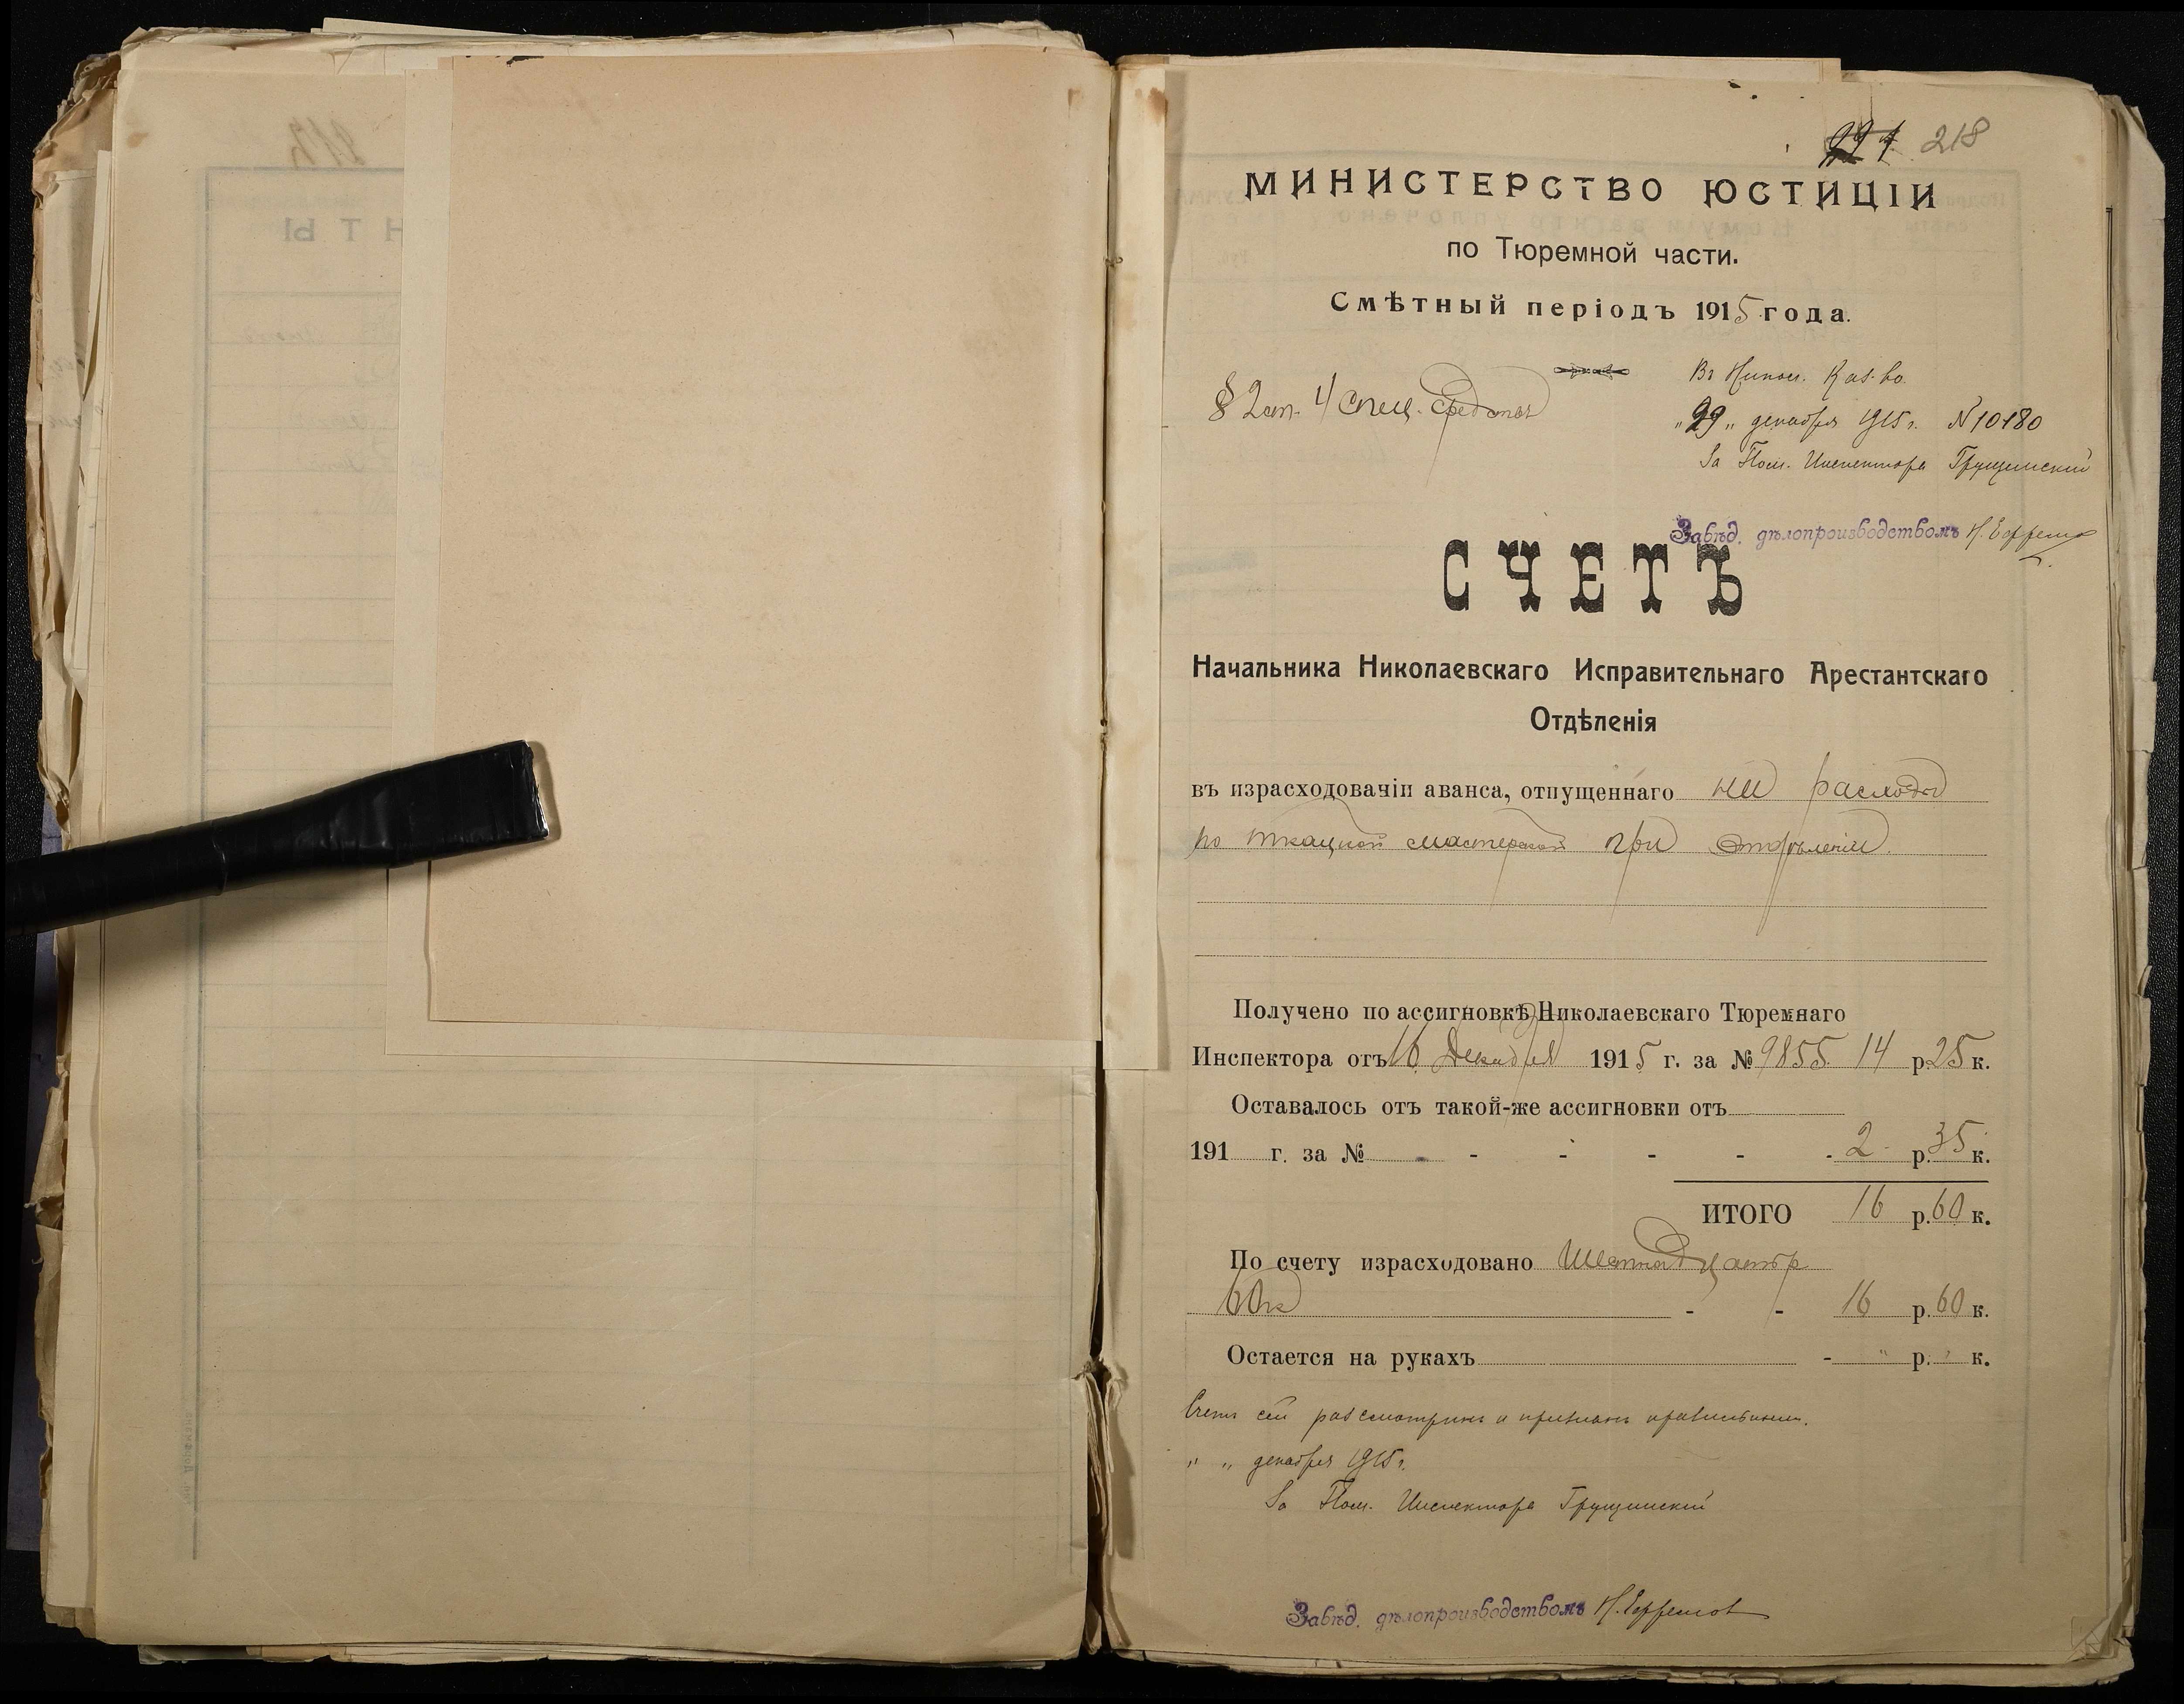 218
МИНИСТЕРСТВО ЮСТИЦІИ
по Тюремной части.
Смѣтный періодъ 1915 года.
§ 2 ст. 4 спец. средствъ
Въ Никол. Каз-во.
"29" декабря 1915 г. № 10180
За Пом. Инспектора Грущинскій
Завѣд. дѣлопроизводствомъ Н. Ефремов
СЧЕТЪ
Начальника Николаевскаго Исправительнаго Арестантскаго
Отдѣленія
въ израсходованіи аванса, отпущеннаго на расходы
по ткацкой мастерской при Отдѣленіи.
Получено по ассигновкѣ Николаевскаго Тюремнаго
Инспектора отъ 16 Декабря 1915 г. за № 9855 14 р. 25 к.
Оставалось отъ такой-же ассигновки отъ
191 г. за № - - - - - 2 р. 35 к.
ИТОГО 16 р. 60 к.
По счету израсходовано Шестнадцать р
60 к - - 16 р. 60 к.
Остается на рукахъ - " р. " к.
Счетъ сей разсмотрѣнъ и признанъ правильнымъ.
" " декабря 1915 г.
За Пом. Инспектора Грущинскій
Завѣд. дѣлопроизводствомъ Н. Ефремов